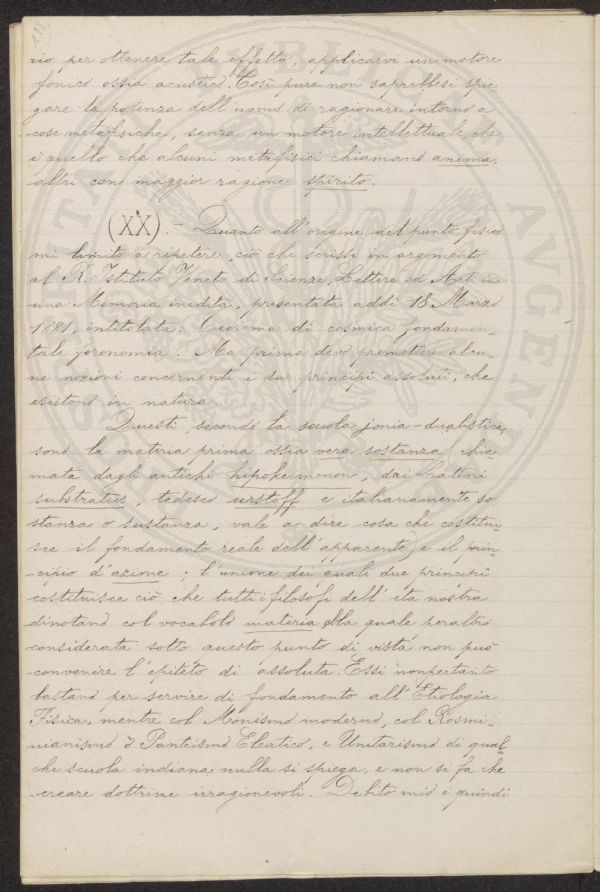 rio per ottenere tale effetto, applicarvi un motore
fonico ossia acustico. Così pure non saprebbesi spie-
gare la potenza dell'uomo di ragionare intorno a
cose metafisiche, senza un motore intellettuale, che
è quello che alcuni metafisici chiamano anima,
altri con maggior ragione spirito.
(XX) - Quanto all'origine del punto fisico
mi limito a ripetere, ciò che scrissi in argomento
al R. Istituto Veneto di Scienze, Lettere ed Arti in
una Memoria inedita, presentata addì 18 Marzo
1881, intitolata: Teorema di cosmica fondamen-
tale foronomia. Ma prima devo premettere alcu-
ne nozioni concernenti i due principî assoluti, che
esistono in natura.
Questi, secondo la scuola jonia-dualistica,
sono la materia prima ossia vera sostanza (chia-
mata dagli antichi hipokeimenono, dai Latini
substratus, tedesco urstoff e italianamente so-
stanza o sustanza, vale a dire cosa che costitui-
sce il fondamento reale dell'apparente) e il prin-
cipio d'azione; l'unione dei quali due principî
costituisce ciò, che tutti i filosofi dell'età nostra
dinotano col vocabolo materia, la quale peraltro
considerata sotto questo punto di vista non può
convenire l'epiteto di assoluta. Essi nonpertanto
bastano per servire di fondamento all'Etiologia
Fisica, mentre col Monismo moderno, col Rosmi-
nianismo o Panteismo Eleatico, e Unitarismo di qual-
che scuola indiana nulla si spiega, e non si fa che
creare dottrine irragionevoli. Debito mio è quindi